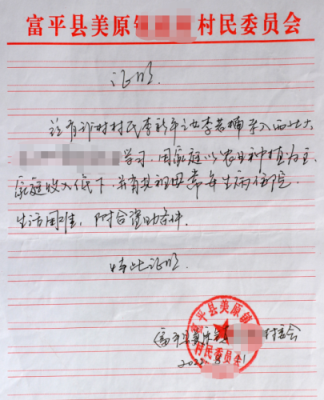 富平县美原镇 村民委员会
证明
兹有我村村民李 之 李 楠 入西北大
学习,因家庭以农业种植为主,
家庭收入低下,并有其祖母常年生病住院,
生活困难,符合资助条件。
特此证明
富平县美原镇
村民委员会
富平县美原镇 村委会
2022